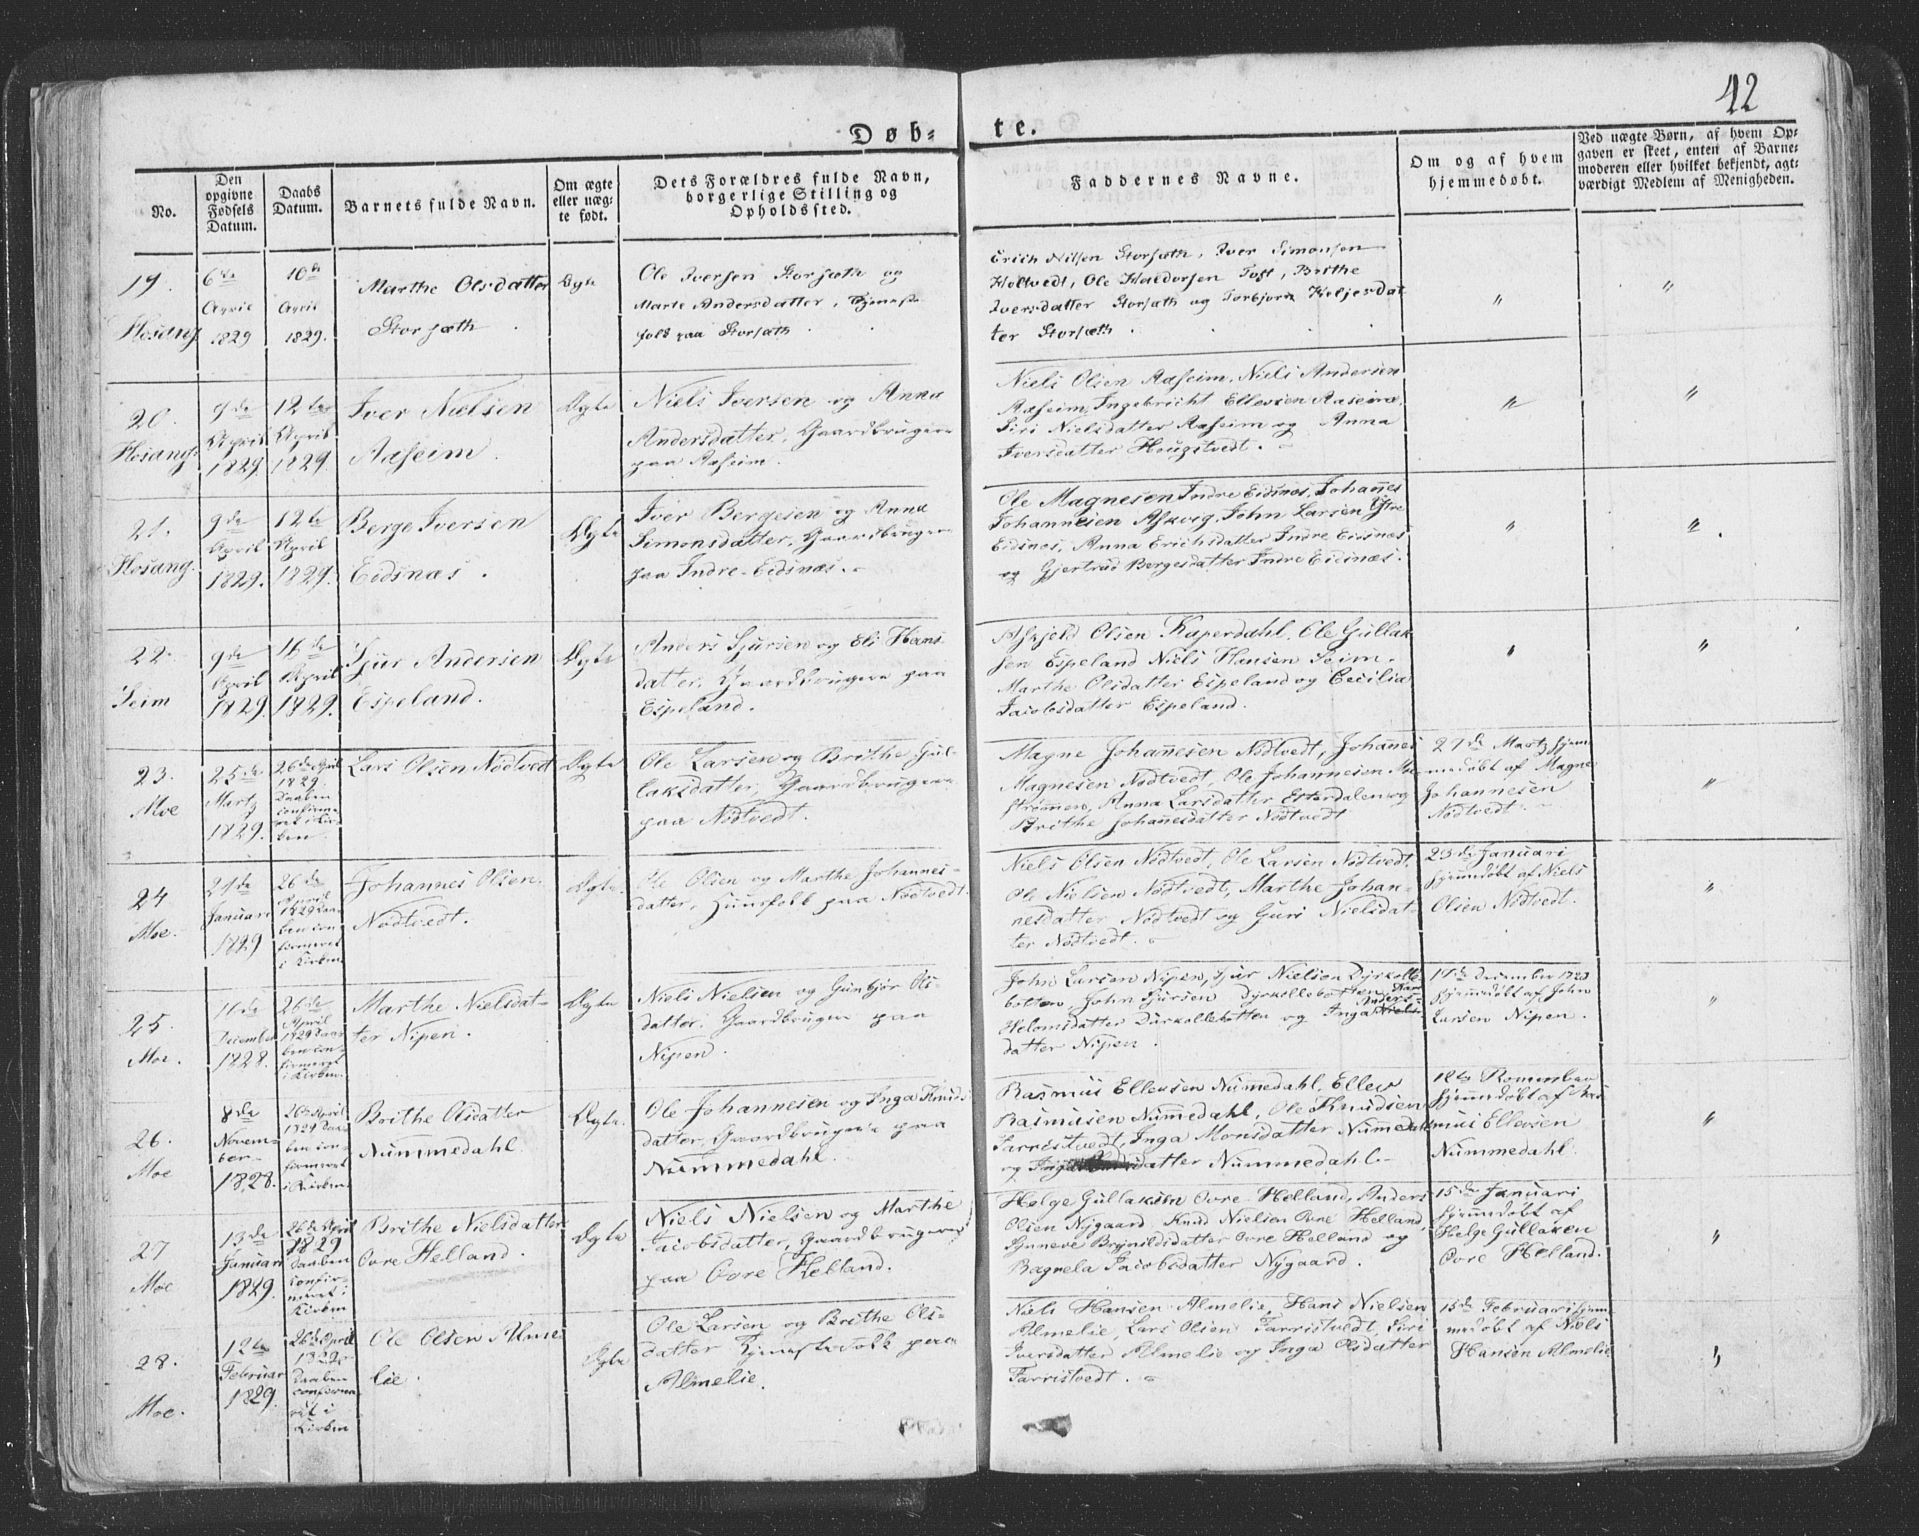 42
Døb- te.
No.
Den opgivne Fødsels Datum.
Daabs Datum.
Barnets fulde Navn.
Om ægte eller uægte født.
Dets Forældres fulde Navn, borgerlige Stilling og Opholdssted.
Faddernes Navne.
Om og af hvem hjemmedøbt.
Ved uægte Børn, af hvem Opgaven er skeet, enten af Barnemoderen eller hvilket bekjendt, agtværdigt Medlem af Menigheden.
19.
Hosang
6de
April
1829
10de
April
1829.
Marthe Olsdatter
Storsæth
Ægte
Ole Iversen Storsæth og
Marte Andersdatter, Tjeneste
folk paa Storsæth
Erich Nilsen Storsæth, Iver Simonsen
Holtvedt, Ole Haldorsen Toft, Brithe
Iversdatter Storsæth og Torbjorn
ter Storsæth
"
"
20.
Hosang
9de
April
1829.
12te
April
1829.
Iver Nielsen
Aasheim.
Ægte
Niels Iversen og Anna
Andersdatter, Gaardbrugere
paa Aasheim.
Niels Olsen Aasheim, Niels Andersen
Aasheim, Ingebricht Ellevsen Aasheim,
Siri Nielsdatter Aasheim og Anna
Iversdatter Hougstvedt.
"
"
21.
Hosang.
9de
April
1829.
12te
April
1829.
Berge Iversen
Eidsnæs.
Ægte
Iver Bergesen og Anna
Simonsdatter, Gaardbrugere
paa Indre-Eidsnæs.
Ole Magnesen Indre Eidsnæs, Johannes
Johannesen Askvig, John Larsen Ytre
Eidsnes, Anna Erichsdatter Indre Eidsnes
og Gjertrud Bergesdatter Indre Eidsnæs.
"
"
22.
Seim
9de
April
1829.
16de
April
1829.
Sjur Andersen
Espeland.
Ægte
Anders Sjursen og Eli Hans
datter, Gaardbrugere paa
Espeland.
Askjeld Olsen Kuperdahl, Ole Gullak
sen Espeland Niels Hansen Seim.
Marthe Olsdatter Espeland og Cecilia
Jacobsdatter Espeland.
"
"
23.
Moe
25de
Martz
1829.
26de April
1829.
Daaben
confirme
ret i Kir
ken.
Lars Olsen Nodtvedt
Ægte
Ole Larsen og Brithe Gul-
laksdatter, Gaardbrugere
paa Nodtvedt.
Magne Johannesen Nodtvedt, Johannes
Magnesen Nodtvedt, Ole Johannesen Moe
strømmen, Anna Larsdatter Esterdalen og
Brithe Johannesdatter Nodtvedt
27de Martz hjem
medøbt af Magne
Johannesen
Nodtvedt.
"
24
Moe.
21de
Januari
1829
26de
April
1829 Daa-
ben con-
firmeret
i Kirken
Johannes Olsen
Nodtvedt.
Ægte.
Ole Olsen og Marthe Johannes-
datter, Huusfolk paa Nodtvedt.
Niels Olsen Nodtvedt, Ole Larsen Nodtvedt,
Ole Nielsen Nodtvedt, Marthe Johan-
nesdatter Nodtvedt og Guri Nielsdat-
ter Nodtvedt.
23de Januari
hjemedøbt af Niels
Olsen Nodtvedt.
"
25.
Moe.
11de
December
1828.
26de
April
1829 Daa-
ben con-
firmeret
i Kirken.
Marthe Nielsdat-
ter Nipen.
Ægte
Niels Nielsen og Gunbjør Ols-
datter, Gaardbrugere paa
Nipen.
John Larsen Nipen, Sjur Nielsen Dyrkolle-
botten, John Sjursen Dyrkollebotten
datter Dyrkollebotten og Inga
datter Nipen.
17de December 1828
hjemedøbt af John
Larsen Nipen.
"
26.
Moe
8de
Novem-
ber
1828.
26de April
1829 Daa-
ben con-
firmeret
i Kirken
Brithe Olsdatter
Nummedahl.
Ægte.
Ole Johannesen og Inga Knuds
datter, Gaardbrugere paa
Nummedahl.
Rasmus Ellevsen Nummedahl, Ellev
Rasmusen Nummedahl, Ole Knudsen
Farristvedt, Inga Monsdatter Nummedahl
og datter Nummedahl.
12te
hjemedøbt af Ras
mus Ellevsen
Nummedahl.
"
27
Moe
13de
Januari
1829.
26de April
1829
Daaben
confir-
meret i
Kirken
Brithe Nielsdatter
Ovre Helland.
Ægte
Niels Nielsen og Marthe
Jacobsdatter, Gaardbrugere
paa Ovre Helland.
Helge Gullaksen Ovre Helland, Anders
Olsen Nygaard Knud Nielsen Ovre Helland,
Synneve Brynildsdatter Ovre Helland og
Ragnela Jacobsdatter Nygaard.
15de Januari
hjemedøbt af
Helge Gullaksen
Ovre Helland.
"
28.
Moe.
12te
Februar
1829.
26de April
1829
Daaben
confirme
ret i
Kirken
Ole Olsen Alme
lie.
Ægte
Ole Larsen og Brithe Ols-
datter Tjenestefolk paa
Almelie.
Niels Hansen Almelie, Hans Nielsen
Almelie, Lars Olsen Farristvedt, Siri
Iversdatter Almelie og Inga Olsdatter
Farristvedt.
15de Februari hjem
medøbt af Niels
Hansen Almelie
"